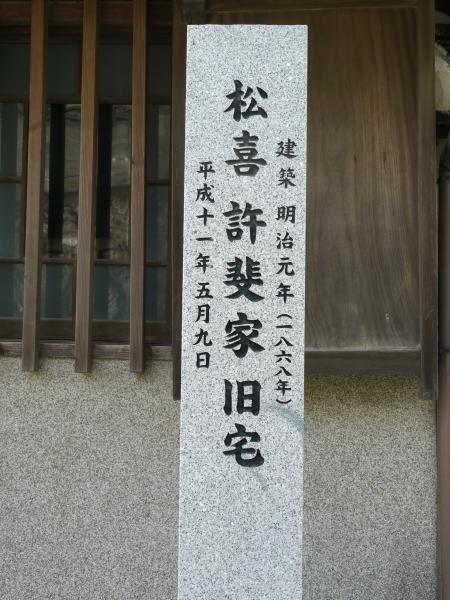 建築 明治元年(一八六八年)
松喜 許斐家 旧宅
平成十一年五月九日